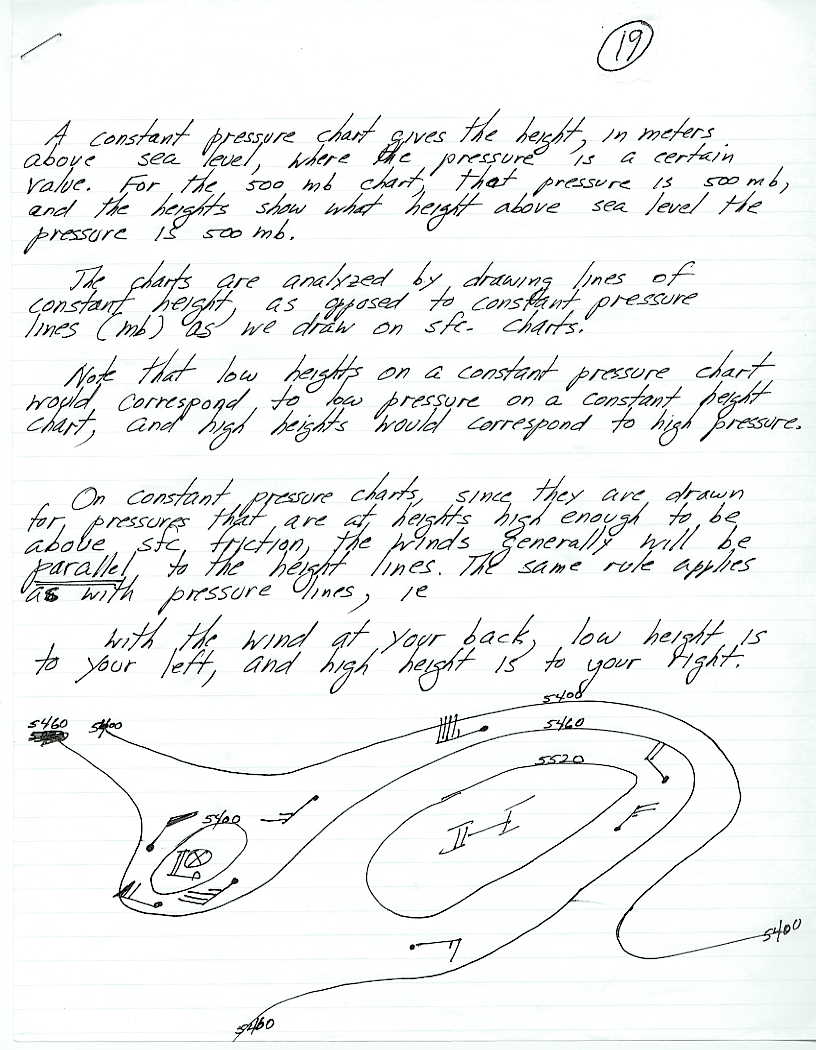 19
A constant pressure chart gives the height, in meters
above sea level, where the pressure is a certain
value. For the 500 mb chart, that pressure is 500 mb,
and the heights show what height above sea level the
pressure is 500 mb.
The charts are analyzed by drawing lines of
constant height, as opposed to constant pressure
lines (mb) as we draw on sfc. charts.
Note that low heights on a constant pressure chart
would correspond to low pressure on a constant height
chart, and high heights would correspond to high pressure.
On constant pressure charts, since they are drawn
for pressures that are at heights high enough to be
above sfc friction, the winds generally will be
parallel to the height lines. The same rule applies
as with pressure lines, ie
with the wind at your back, low height is
to your left, and high height is to your right.
5400
5460 5400
5460
5520
5400
H
L
5400
5460